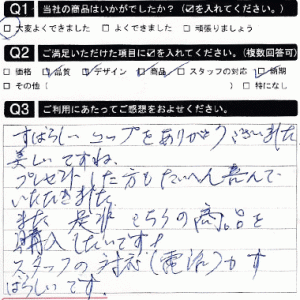 Q1 当社の商品はいかがでしたか？（☑を入れてください。）
☑大変よくできました □よくできました □頑張りましょう
Q2 ご満足いただけた項目に☑を入れてください。（複数回答可）
□価格 ☑品質 ☑デザイン ☑商品 □スタッフの対応 ☑納期
□その他（ ） □特になし
Q3 ご利用にあたってご感想をおよせください。
すばらしいコップをありがとうございました
美しいですね。
プレゼントした方もたいへん喜んで
いただきました。
また 是非 こちらの商品を
購入したいです！
スタッフの対応（電話）がす
ばらしいです。